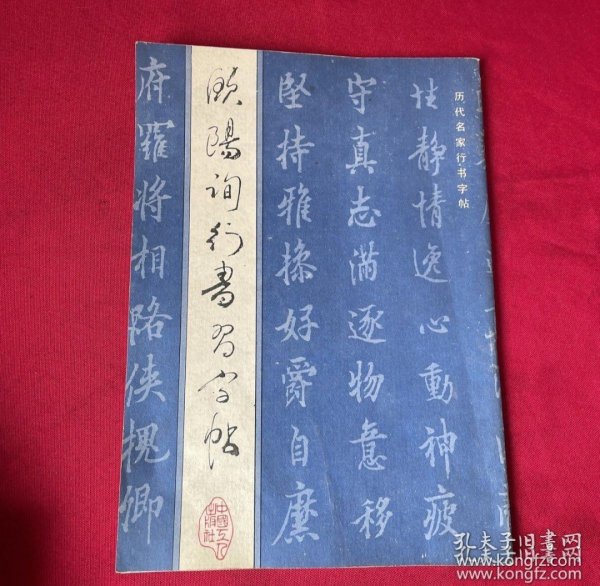 历代名家行书字帖
性静情逸心動神疲
守真志满逐物意移
堅持雅操好爵自縻
欧陽询行書習字帖
府羅将相路侠槐卿
中國工人出版社
孔夫子旧書网
www.kongfz.com
www.kongfz.com